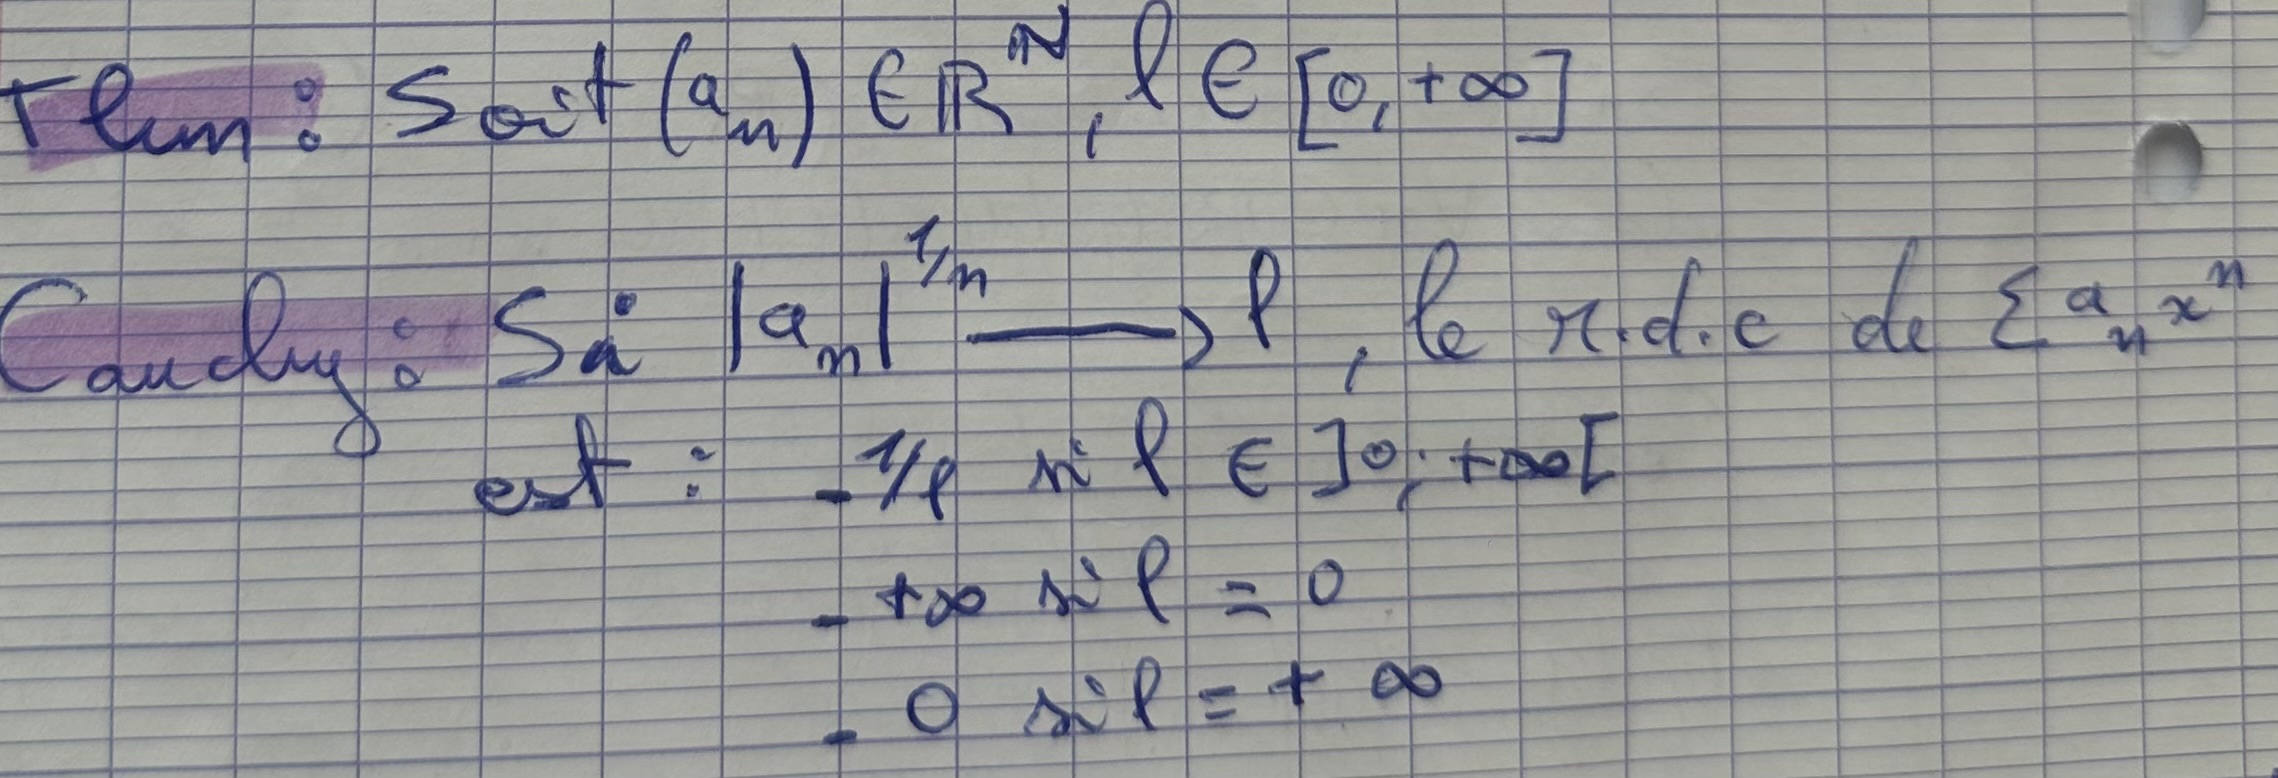 Thm : Soit (aₙ) ∈ ℝ^ℕ, l ∈ [0, +∞]
Cauchy : Si |aₙ|^1/n ⟶ l, le r.d.c de Σ aₙ xⁿ
est : - 1/l si l ∈ ]0; +∞[
- +∞ si l = 0
- 0 si l = + ∞